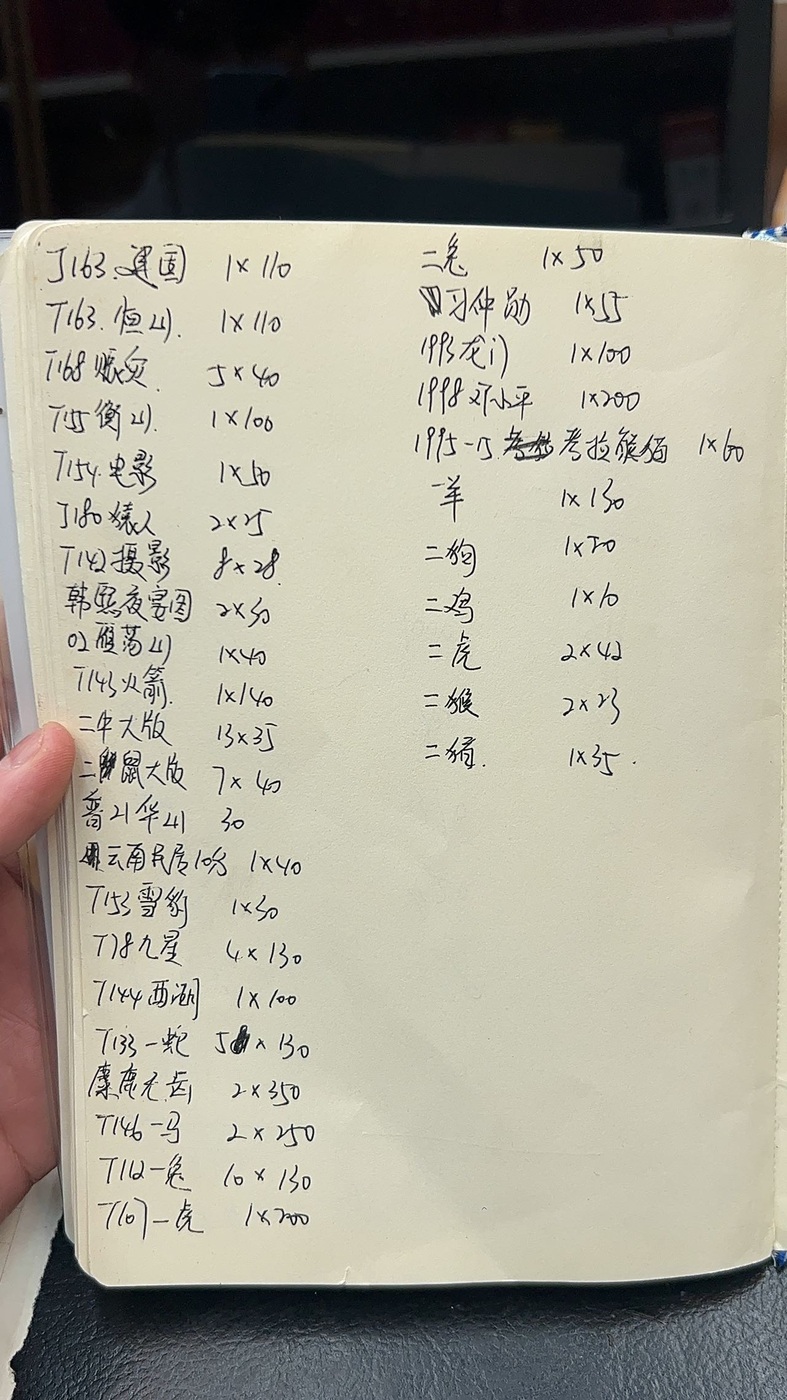 J163.建国 1×110
T163.恒山. 1×110
T168赈灾. 5×40
T155衡山. 1×100
T154.电影 1×50
J180猿人 2×25
T142摄影 8×28
韩熙夜宴图 2×30
02雁荡山 1×40
T143火箭. 1×140
二牛大版 13×35
二鼠大版 7×40
普21华山 30
云南民居10分 1×40
T153雪豹 1×30
T78九星 4×130
T144西湖 1×100
T133一蛇 5×130
麋鹿无齿 2×350
T146一马 2×250
T112一兔 10×130
T107一虎 1×200
二兔 1×50
习仲勋 1×55
1993龙门 1×100
1998邓小平 1×200
1995-15考拉熊猫 1×60
一羊 1×130
二狗 1×50
二鸡 1×10
二虎 2×42
二猴 2×23
二猪. 1×35.